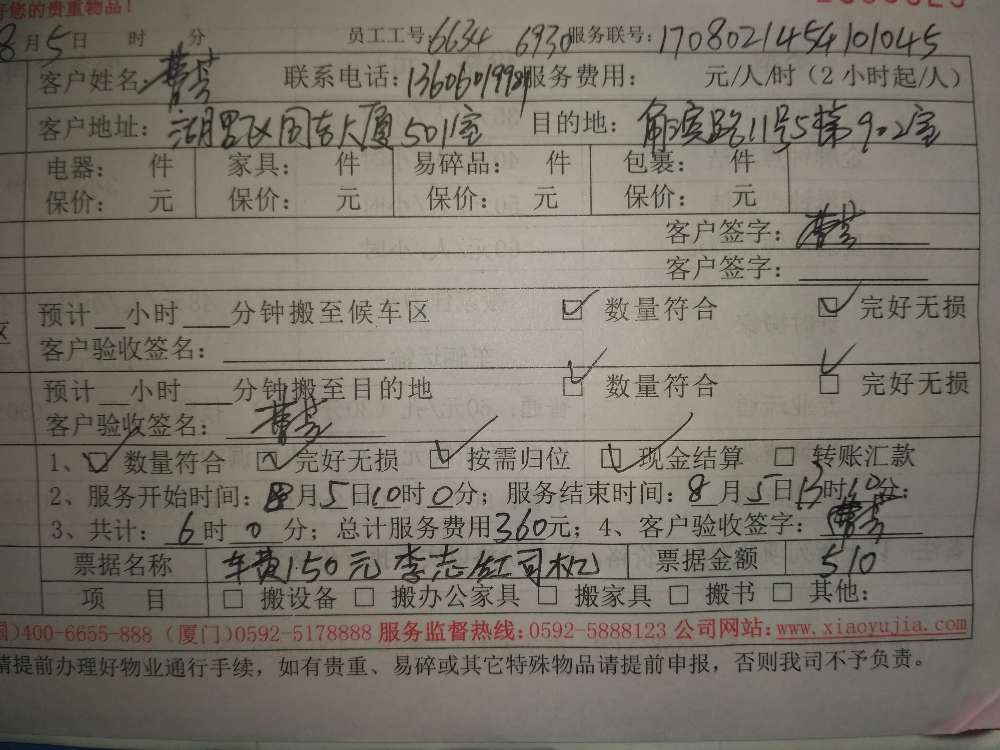 好您的贵重物品!
8月5日 时 分 员工工号:6634 6930 服务联号:1708021454101045
客户姓名: 曹芸 联系电话: 服务费用: 元/人/时(2小时起/人)
客户地址: 湖里区国泰大厦501室 目的地: 路11号5栋902室
电器: 件 家具: 件 易碎品: 件 包裹: 件
保价: 元 保价: 元 保价: 元 保价: 元
客户签字:
客户签字:
区 预计__小时___分钟搬至候车区 数量符合 完好无损
客户验收签名:
预计__小时___分钟搬至目的地 数量符合 完好无损
客户验收签名:
1、 数量符合 完好无损 按需归位 现金结算 转账汇款
2、服务开始时间: 8月5日10时0分; 服务结束时间: 8月5日13时10分;
3、共计: 6时0分; 总计服务费用360元; 4、客户验收签字:
票据名称 车费150元 李志红司机 票据金额 510
项 目 搬设备 搬办公家具 搬家具 搬书 其他:
)400-6655-888 (厦门)0592-5178888 服务监督热线:0592-5888123 公司网站:www.xiaoyujia.com
请提前办理好物业通行手续,如有贵重、易碎或其它特殊物品请提前申报,否则我司不予负责。